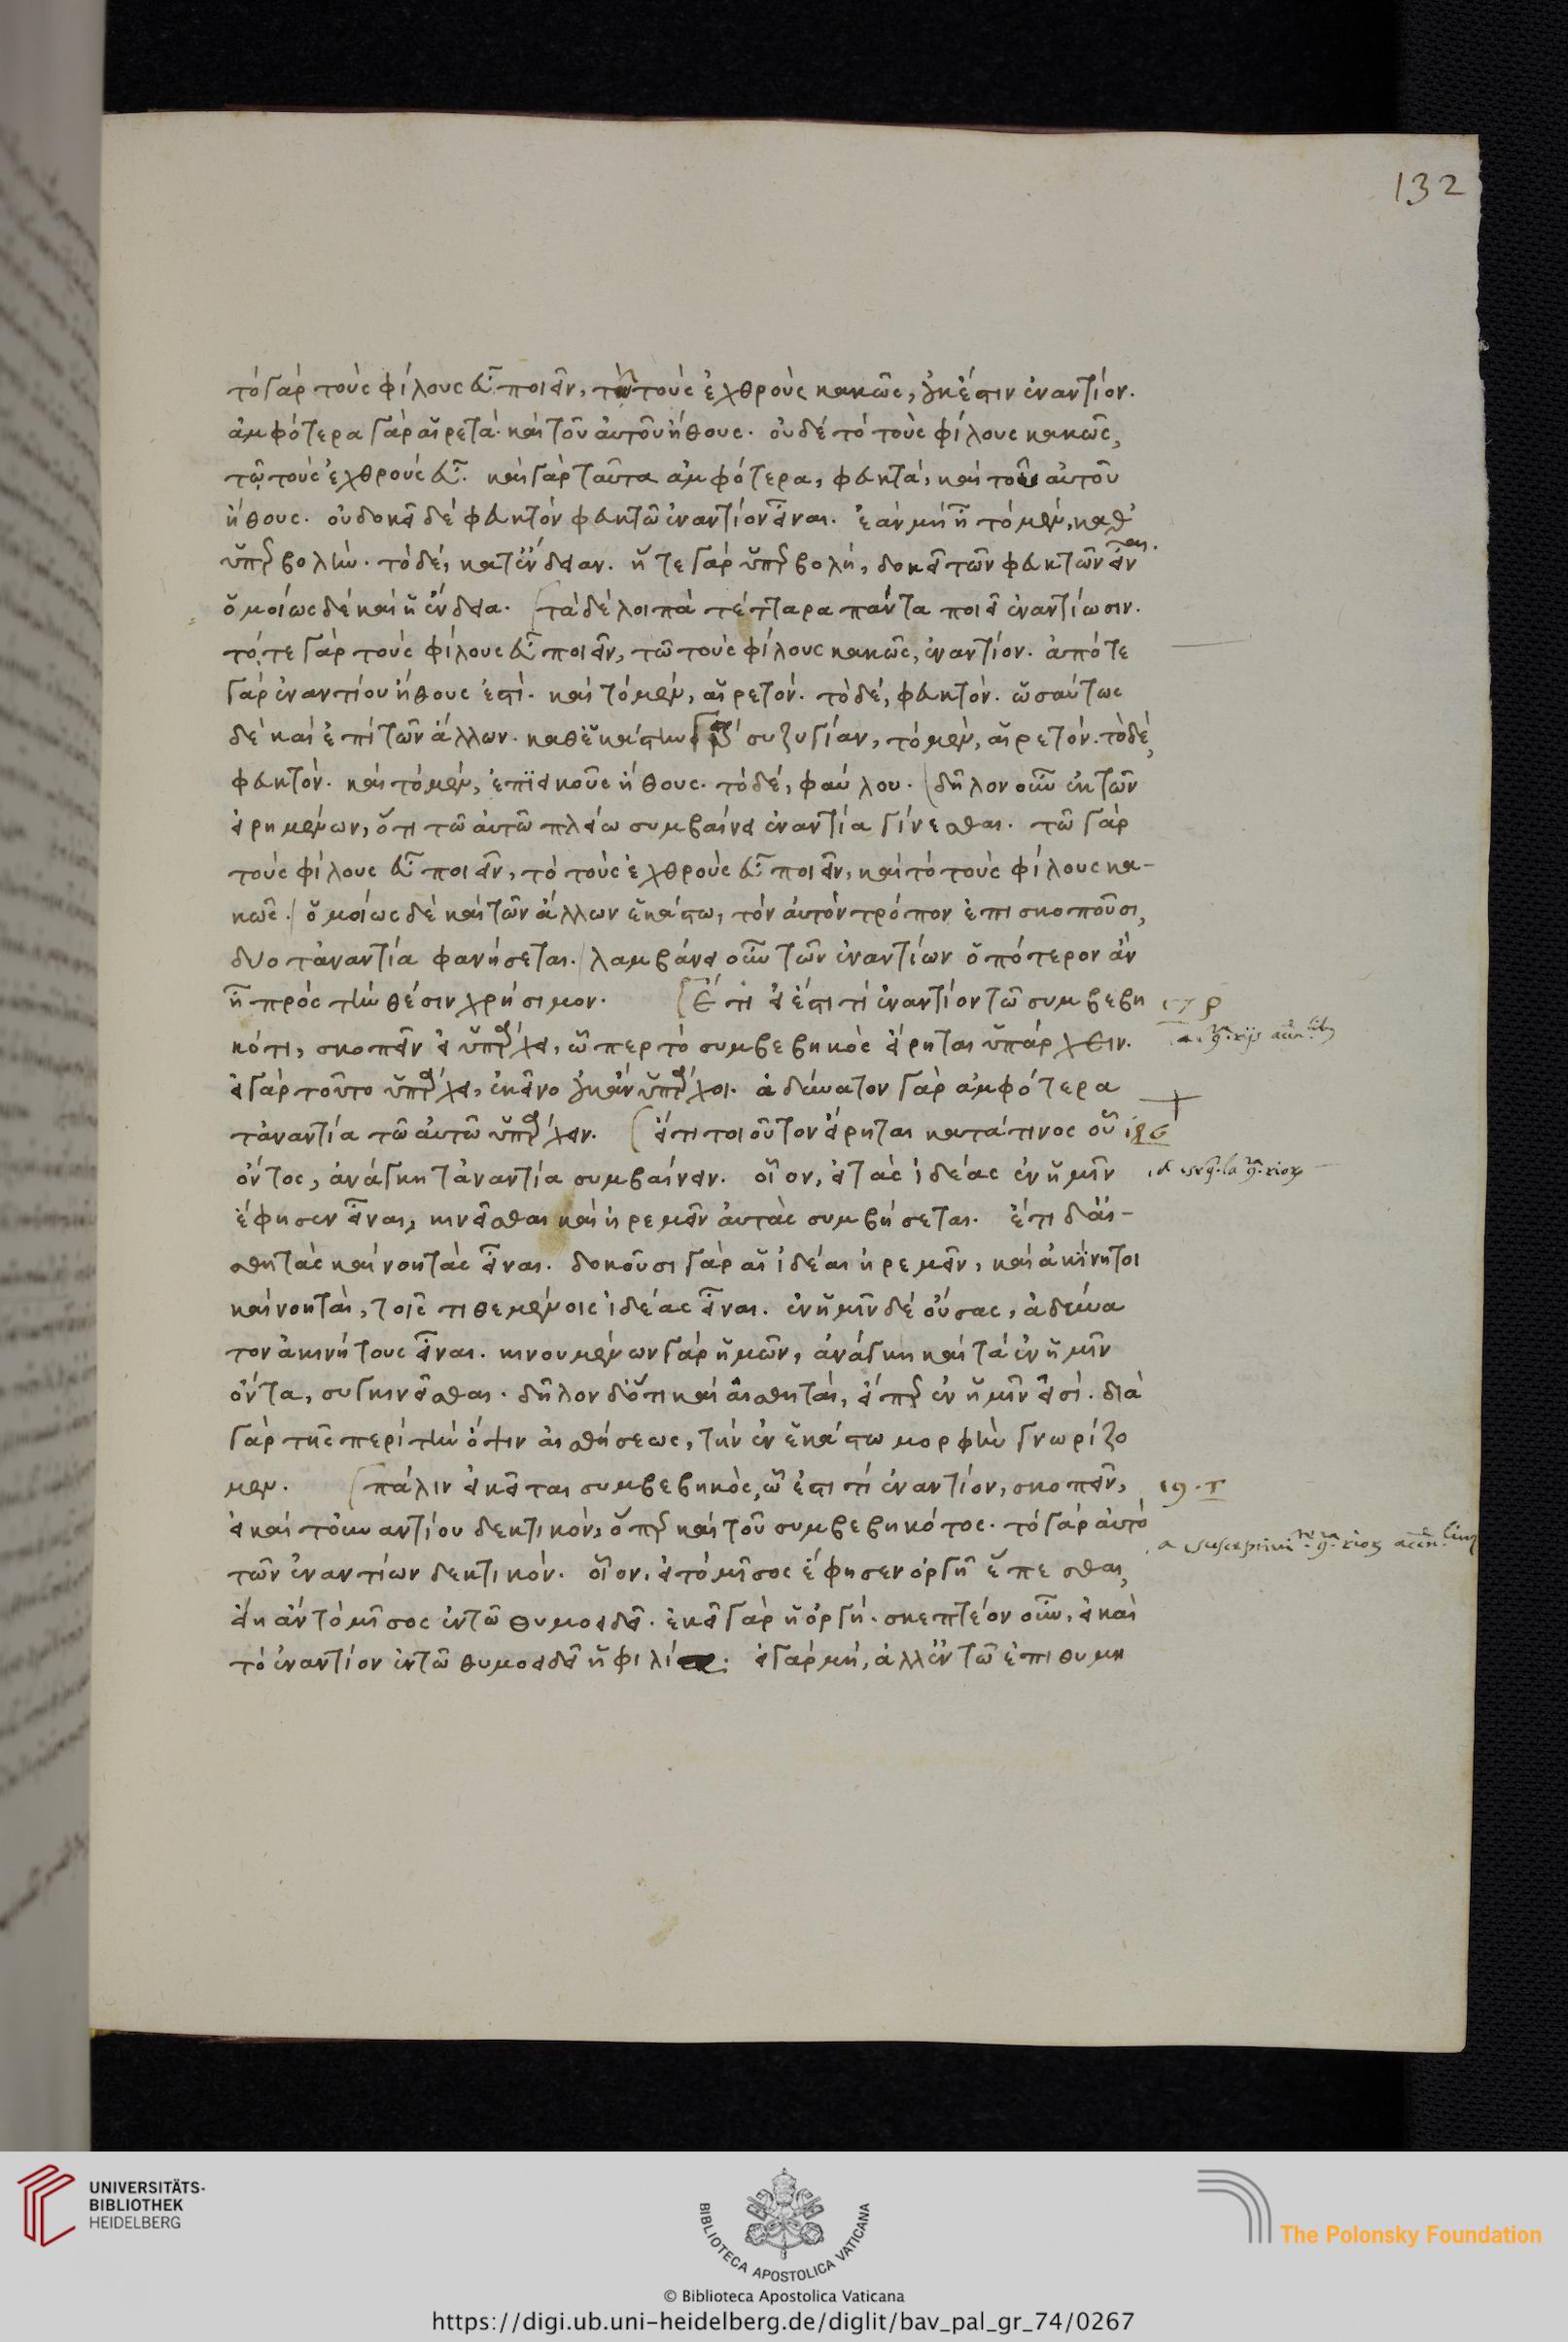 132
τό γάρ τούς φίλους εὖ ποιεῖν, τῶ τούς ἐχθρούς κακῶς, οὐκ ἔστιν ἐναντίον.
ἀμφότερα γάρ αἱρετά. καί τοῦ αὐτοῦ ἤθους. οὐδέ τό τούς φίλους κακῶς,
τῶ τούς ἐχθρούς εὖ. καί γάρ ταῦτα ἀμφότερα, φευκτά, καί τοῦ αὐτοῦ
ἤθους. οὐ δοκεῖ δέ φευκτόν φευκτῶ ἐναντίον εἶναι. ἐάν μή ἦ τό μέν, καθ'
ὑπερβολήν. τό δέ, κατ' ἔνδειαν. ἥ τε γάρ ὑπερβολή, δοκεῖ τῶν φευκτῶν εἶναι.
ὁμοίως δέ καί ἡ ἔνδεια. τά δέ λοιπά τέτταρα πάντα ποιεῖ ἐναντίωσιν.
τό, τε γάρ τούς φίλους εὖ ποιεῖν, τῶ τούς φίλους κακῶς, ἐναντίον. ἀπό τε
γάρ ἐναντίου ἤθους ἐστί. καί τό μέν, αἱρετόν. τό δέ, φευκτόν. ὡσαύτως
δέ καί ἐπί τῶν ἄλλων. καθ' ἑκάστην γάρ συζυγίαν, τό μέν, αἱρετόν. τό δέ,
φευκτόν. καί τό μέν, ἐπιεικοῦς ἤθους. τό δέ, φαύλου. δῆλον οὖν ἐκ τῶν
εἰρημένων, ὅτι τῶ αὐτῶ πλείω συμβαίνει ἐναντία γίνεσθαι. τῶ γάρ
τούς φίλους εὖ ποιεῖν, τό τούς ἐχθρούς εὖ ποιεῖν, καί τό τούς φίλους κα-
κῶς. ὁμοίως δέ καί τῶν ἄλλων ἑκάστω, τόν αὐτόν τρόπον ἐπισκοποῦσι,
δύο τἀναντία φανήσεται. λαμβάνει οὖν τῶν ἐναντίων ὁπότερον ἄν
ἦ πρός τήν θέσιν χρήσιμον. Ἔτι εἰ ἔστι τί ἐναντίον τῶ συμβεβη
κότι, σκοπεῖν εἰ ὑπάρχει, ὧπερ τό συμβεβηκός εἴρηται ὑπάρχειν.
εἰ γάρ τοῦτο ὑπάρχει, ἐκεῖνο οὐκ ἄν ὑπάρχοι. ἀδύνατον γάρ ἀμφότερα
τἀναντία τῶ αὐτῶ ὑπάρχειν. εἴ τι τοιοῦτον εἴρηται κατά τινος οὗ
ὄντος, ἀνάγκη τἀναντία συμβαίνειν. οἷον, εἰ τάς ἰδέας ἐν ἡμῖν
ἔφησεν εἶναι, κινεῖσθαι καί ἠρεμεῖν αὐτάς συμβήσεται. ἔτι δ' αἰ-
σθητάς καί νοητάς εἶναι. δοκοῦσι γάρ αἱ ἰδέαι ἠρεμεῖν, καί ἀκίνητοι
καί νοηταί, τοῖς τιθεμένοις ἰδέας εἶναι. ἐν ἡμῖν δέ οὔσας, ἀδύνα
τον ἀκινήτους εἶναι. κινουμένων γάρ ἡμῶν, ἀνάγκη καί τά ἐν ἡμῖν
ὄντα, συγκινεῖσθαι. δῆλον δ' ὅτι καί αἰσθηταί, εἴπερ ἐν ἡμῖν εἰσί. διά
γάρ τῆς περί τήν ὄψιν αἰσθήσεως, τήν ἐν ἑκάστω μορφήν γνωρίζο
μεν. πάλιν εἰ κεῖται συμβεβηκός, ὧ ἐστι τί ἐναντίον, σκοπεῖν,
εἰ καί τοῦ ἐναντίου δεκτικόν, ὅπερ καί τοῦ συμβεβηκότος. τό γάρ αὐτό
τῶν ἐναντίων δεκτικόν. οἷον, εἰ τό μῖσος ἔφησεν ὀργῆ ἕπεσθαι,
εἴη ἄν τό μῖσος ἐν τῶ θυμοειδεῖ. ἐκεῖ γάρ ἡ ὀργή. σκεπτέον οὖν, εἰ καί
τό ἐναντίον ἐν τῶ θυμοειδεῖ ἡ φιλία. εἰ γάρ μή, ἀλλ' ἐν τῶ ἐπιθυμη
19. τ
UNIVERSITÄTS-
BIBLIOTHEK
HEIDELBERG
BIBLIOTECA APOSTOLICA VATICANA
© Biblioteca Apostolica Vaticana
The Polonsky Foundation
https://digi.ub.uni-heidelberg.de/diglit/bav_pal_gr_74/0267